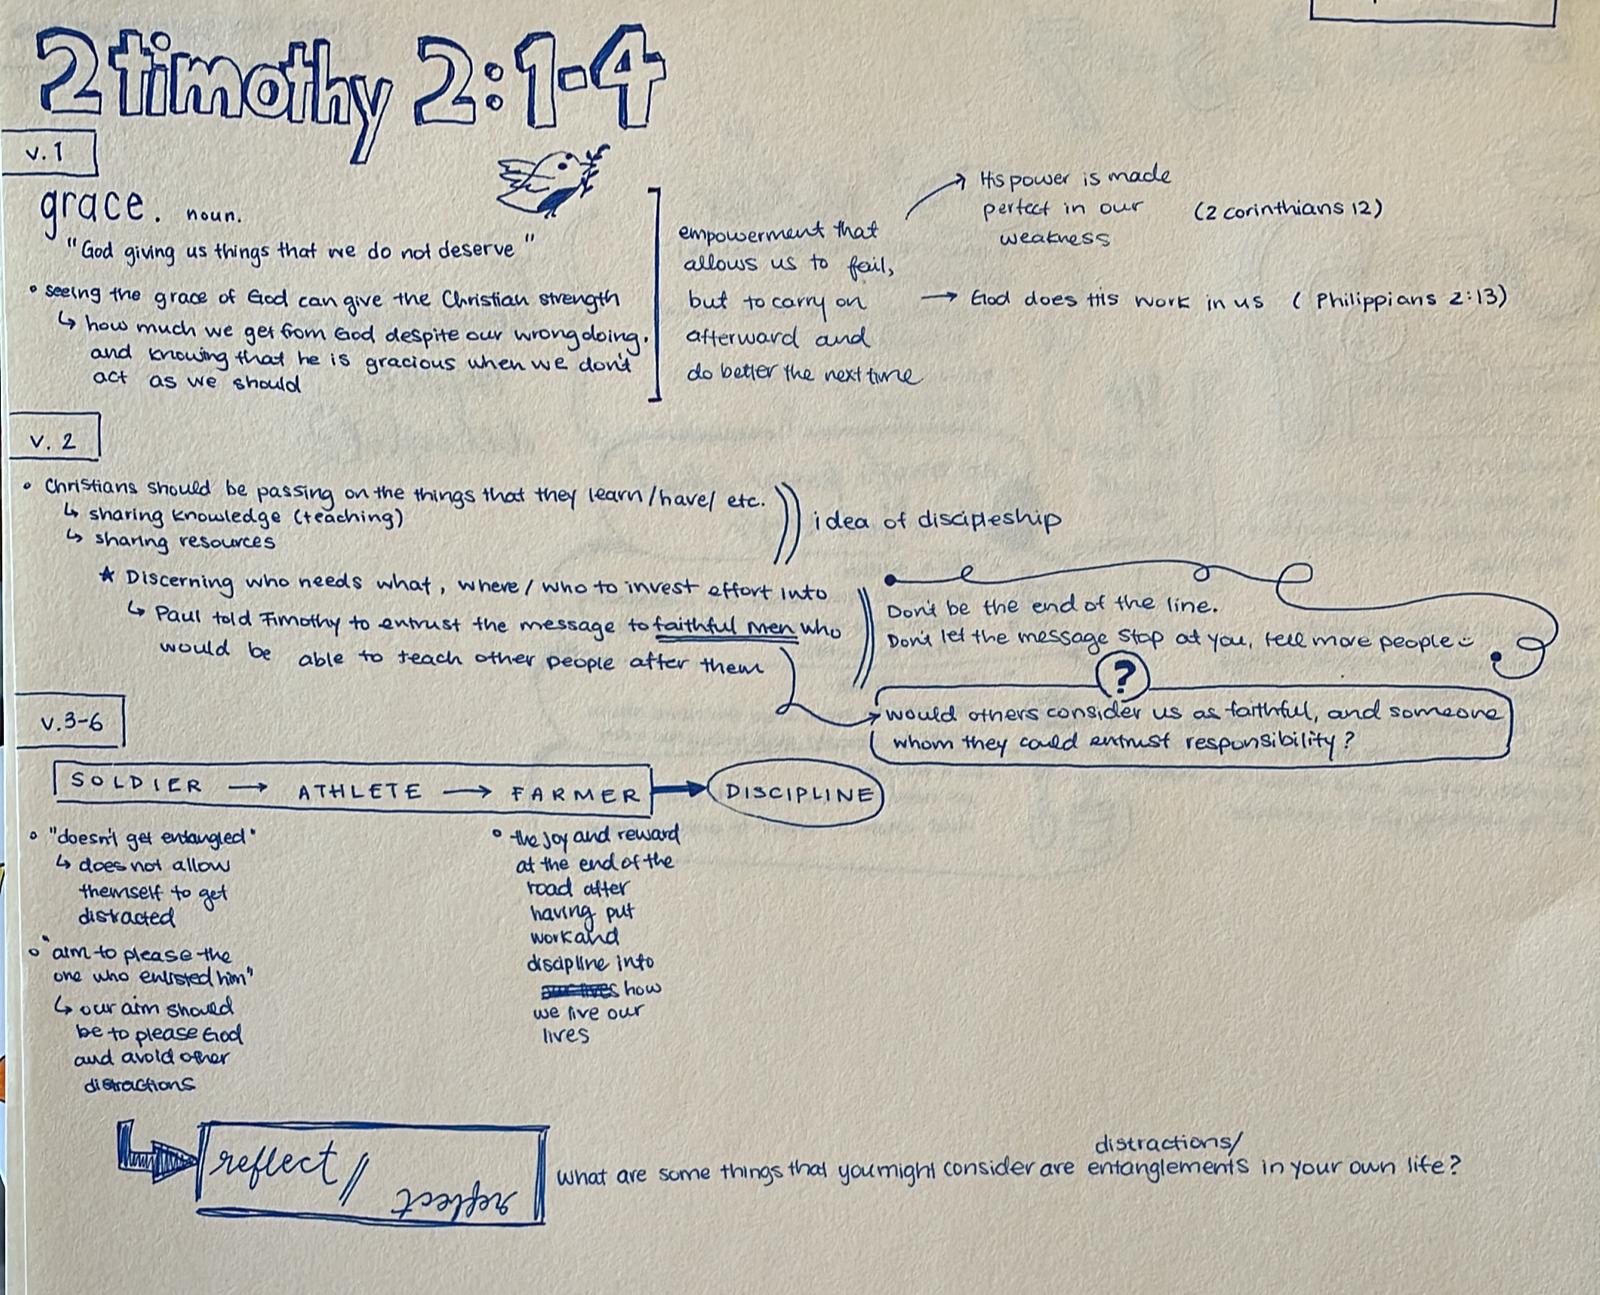 2 timothy 2:1-4
v.1
grace. noun.
"God giving us things that we do not deserve"
• seeing the grace of God can give the Christian strength
↳ how much we get from God despite our wrongdoing.
and knowing that he is gracious when we don't
act as we should
empowerment that
allows us to fail,
but to carry on
afterward and
do better the next time
→ His power is made
perfect in our
weakness
(2 corinthians 12)
→ God does His work in us ( Philippians 2:13)
v. 2
• Christians should be passing on the things that they learn/have/ etc.
↳ sharing knowledge (teaching)
↳ sharing resources
idea of discipleship
★ Discerning who needs what, where/ who to invest effort into
↳ Paul told Timothy to entrust the message to faithful men who
would be able to teach other people after them
Don't be the end of the line.
Don't let the message stop at you, tell more people
?
would others consider us as faithful, and someone
whom they could entrust responsibility?
v.3-6
SOLDIER → ATHLETE → FARMER → DISCIPLINE
• "doesn't get entangled"
↳ does not allow
themself to get
distracted
• "aim to please the
one who enlisted him"
↳ our aim should
be to please God
and avoid other
distractions
• the joy and reward
at the end of the
road after
having put
work and
discipline into
how
we live our
lives
reflect // reflect
distractions/
what are some things that you might consider are entanglements in your own life?